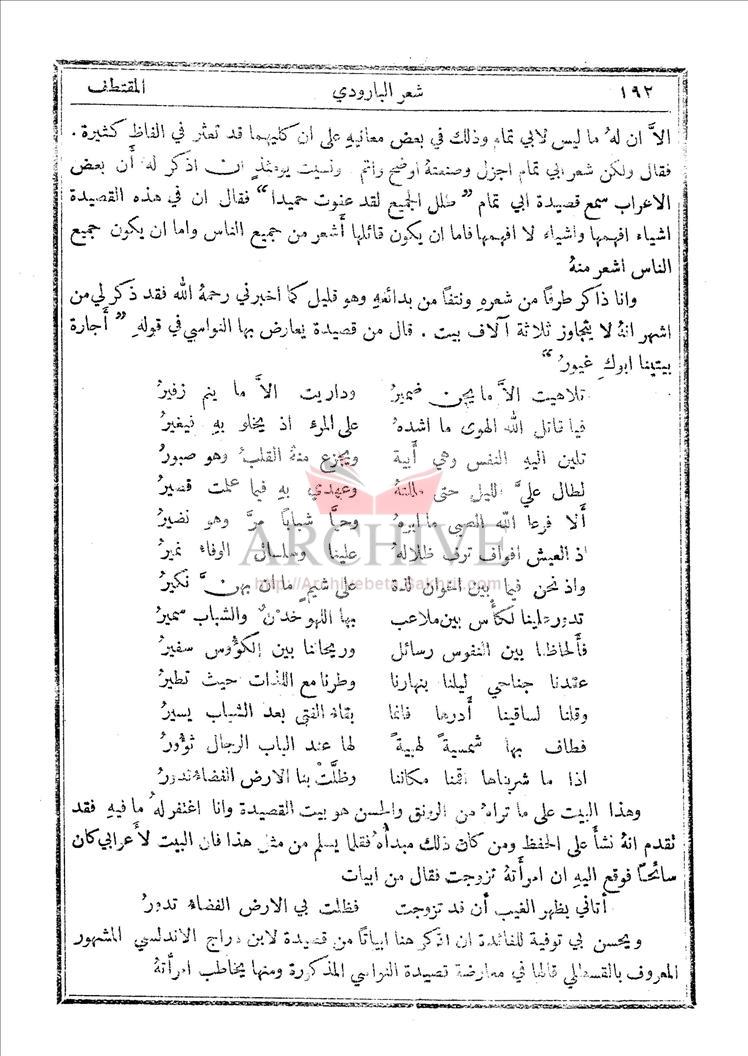 ١٩٢ شعر البارودي المقتطف
الاَّ ان لهُ ما ليس لابي تمام وذلك في بعض معانيهِ على ان كليهما قد تعثر في الفاظ كثيرة .
فقال ولكن شعر ابي تمام اجزل وصنعتهُ اوضح واتم . ونسيت يومئذٍ ان اذكر له أن بعض
الاعراب سمع قصيدة ابي تمام ” طلل الجميع لقد عفوت حميدا “ فقال ان في هذه القصيدة
اشياء افهمها واشياء لا افهمها فاما ان يكون قائلها أشعر من جميع الناس واما ان يكون جميع
الناس اشعر منهُ
وانا ذاكر طرفًا من شعره ونتفًا من بدائعهِ وهو قليل كما اخبرني رحمهُ الله فقد ذكر لي من
اشهر انهُ لا يتجاوز ثلاثة آلاف بيت . قال من قصيدة يعارض بها النواسي في قولهِ ” أجارة
بيتينا ابوكِ غيورُ “
تلاهيت الاَّ ما يجن ضميرُ وداريت الاَّ ما ينم زفيرُ
فيا قاتل الله الهوى ما اشدهُ على المرء اذ يخلو بهِ فيغيرُ
تلين اليهِ النفس وهي أبية ويجزع منهُ القلب وهو صبورُ
لطال عليَّ الليل حتى مللتهُ وعهدي بهِ فيما علمت قصيرُ
ألا فرعا الله الصبى ما ابرهُ وحيَّا شبابًا مرَّ وهو نضيرُ
اذ العيش افواف ترف ظلالهُ علينا وسلسال الوفاء نميرُ
واذ نحن فيما بين اخوان لذة على شيمٍ ما ان بهنَّ نكيرُ
تدور علينا الكأس بين ملاعب بها اللهو خدنٌ والشباب سميرُ
فألحاظنا بين النفوس رسائل وريحاننا بين الكؤوس سفيرُ
عقدنا جناحي ليلنا بنهارنا وطرنا مع اللذات حيث تطيرُ
وقلنا لساقينا أدرها فانما بقاء الفتى بعد الشباب يسيرُ
فطاف بها شمسيةً لهبيةً لها عند الباب الرجال ثؤورُ
اذا ما شربناها اقمنا مكاننا وظلَّتْ بنا الارض الفضاء تدورُ
وهذا البيت على ما تراهُ من الرونق والحسن هو بيت القصيدة وانا اغتفر لهُ ما فيهِ فقد
تقدم انهُ نشأ على الحفظ ومن كان ذلك مبدأهُ فقلما يسلم من مثل هذا فان البيت لأعرابي كان
سائحًا فوقع اليهِ ان امرأتهُ تزوجت فقال من ابيات
أتاني بظهر الغيب أن قد تزوجت فظلت بي الارض الفضاء تدورُ
ويحسن بي توفية للفائدة ان اذكر هنا ابياتًا من قصيدة لابن دراج الاندلسي المشهور
المعروف بالقسطلي قالها في معارضة قصيدة النواسي المذكورة ومنها يخاطب امرأتهُ
ARCHIVE
http://Archivebeta.Sakhrit.com